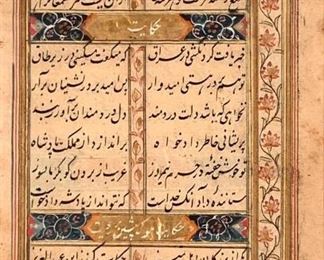 حکایت
خبر یافت گردنکشی در عراق که میگفت مسکینی از زیر طاق
تو هم بر دری هستی امیدوار پس امید بر درنشینان برآر
نخواهی که باشد دلت دردمند دل دردمندان برآور ز بند
پریشانی خاطر دادخواه براندازد از مملکت پادشاه
تو خوش خفته در حرم نیمروز غریب از برون گو بگرما بسوز
ستاننده داد آنکس خداست که نتواند از پادشه دادخواست
حکایت